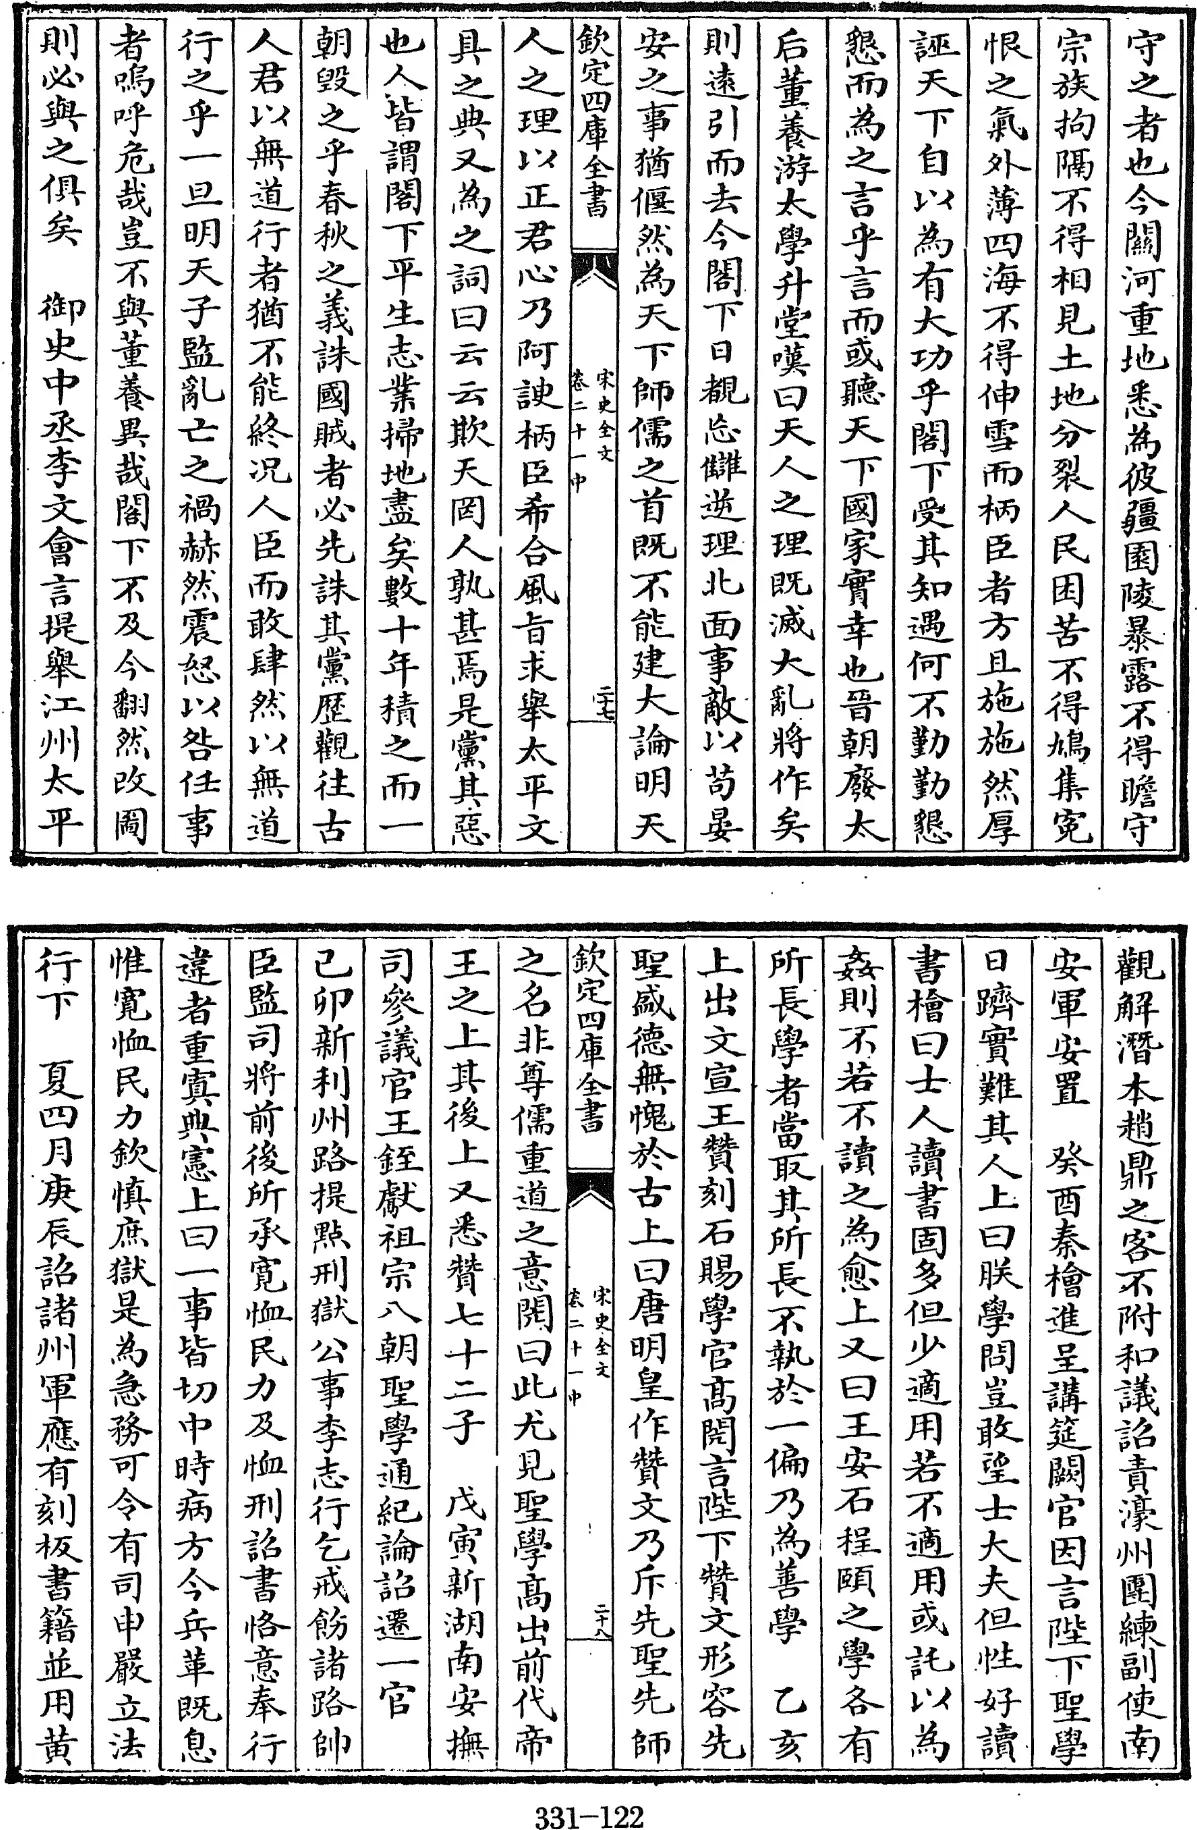 守之者也今關河重地悉為彼疆園陵暴露不得瞻守
宗族拘隔不得相見土地分裂人民困苦不得鳩集寃
恨之氣外薄四海不得伸雪而柄臣者方且施施然厚
誣天下自以為有大功乎閣下受其知遇何不勤勤懇
懇而為之言乎言而或聽天下國家實幸也晉朝廢太
后董養游太學升堂嘆曰天人之理既滅大亂將作矣
則遠引而去今閣下日覩忘讎逆理北面事敵以苟晏
安之事猶偃然為天下師儒之首既不能建大論明天
欽定四庫全書
宋史全文
卷二十一中
二十七
人之理以正君心乃阿諛柄臣希合風旨求舉太平文
具之典又為之詞曰云云欺天罔人孰甚焉是黨其惡
也人皆謂閣下平生志業掃地盡矣數十年積之而一
朝毀之乎春秋之義誅國賊者必先誅其黨歷觀往古
人君以無道行者猶不能終況人臣而敢肆然以無道
行之乎一旦明天子監亂亡之禍赫然震怒以咎任事
者嗚呼危哉豈不與董養異哉閣下不及今翻然改圖
則必與之俱矣　御史中丞李文會言提舉江州太平
觀解潛本趙鼎之客不附和議詔責濠州團練副使南
安軍安置　癸酉秦檜進呈講筵闕官因言陛下聖學
日躋實難其人上曰朕學問豈敢望士大夫但性好讀
書檜曰士人讀書固多但少適用若不適用或託以為
姦則不若不讀之為愈上又曰王安石程頤之學各有
所長學者當取其所長不執於一偏乃為善學　乙亥
上出文宣王贊刻石賜學官高閌言陛下贊文形容先
聖盛德無愧於古上曰唐明皇作贊文乃斥先聖先師
欽定四庫全書
宋史全文
卷二十一中
二十八
之名非尊儒重道之意閌曰此尤見聖學高出前代帝
王之上其後上又悉贊七十二子　戊寅新湖南安撫
司參議官王銍獻祖宗八朝聖學通紀論詔遷一官
己卯新利州路提點刑獄公事李志行乞戒飭諸路帥
臣監司將前後所承寛恤民力及恤刑詔書恪意奉行
違者重寘典憲上曰一事皆切中時病方今兵革既息
惟寛恤民力欽慎庶獄是為急務可令有司申嚴立法
行下　夏四月庚辰詔諸州軍應有刻板書籍並用黄
331-122